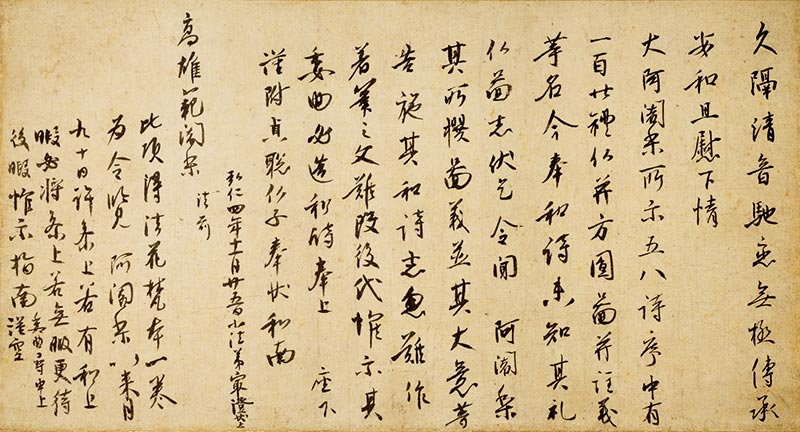 久隔清音馳恋無極傳承
安和且慰下情
大阿闍梨所示五八詩序中有
一百廿禮仏并方圓圖并注義
等名今奉和詩未知其礼
仏圖志伏乞令聞 阿闍梨
其所撰圖義並其大意等
告施其和詩者忽難作
著筆之文難改後代惟示其
委曲必造和詩奉上 座下
謹附貞聡仏子奉状和南
弘仁四年十一月廿五日小法弟最澄状上
高雄範闍梨 法前
此頃得法花梵本一巻
為令覧 阿闍梨以来月
九十日許参上若有和上
暇必将参上若無暇更待
後暇惟示指南謹空